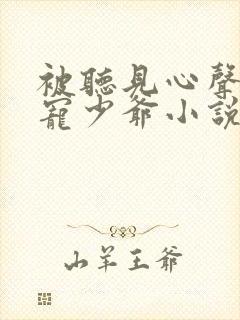 被聽見心聲
寵少爺小說
山羊王爺